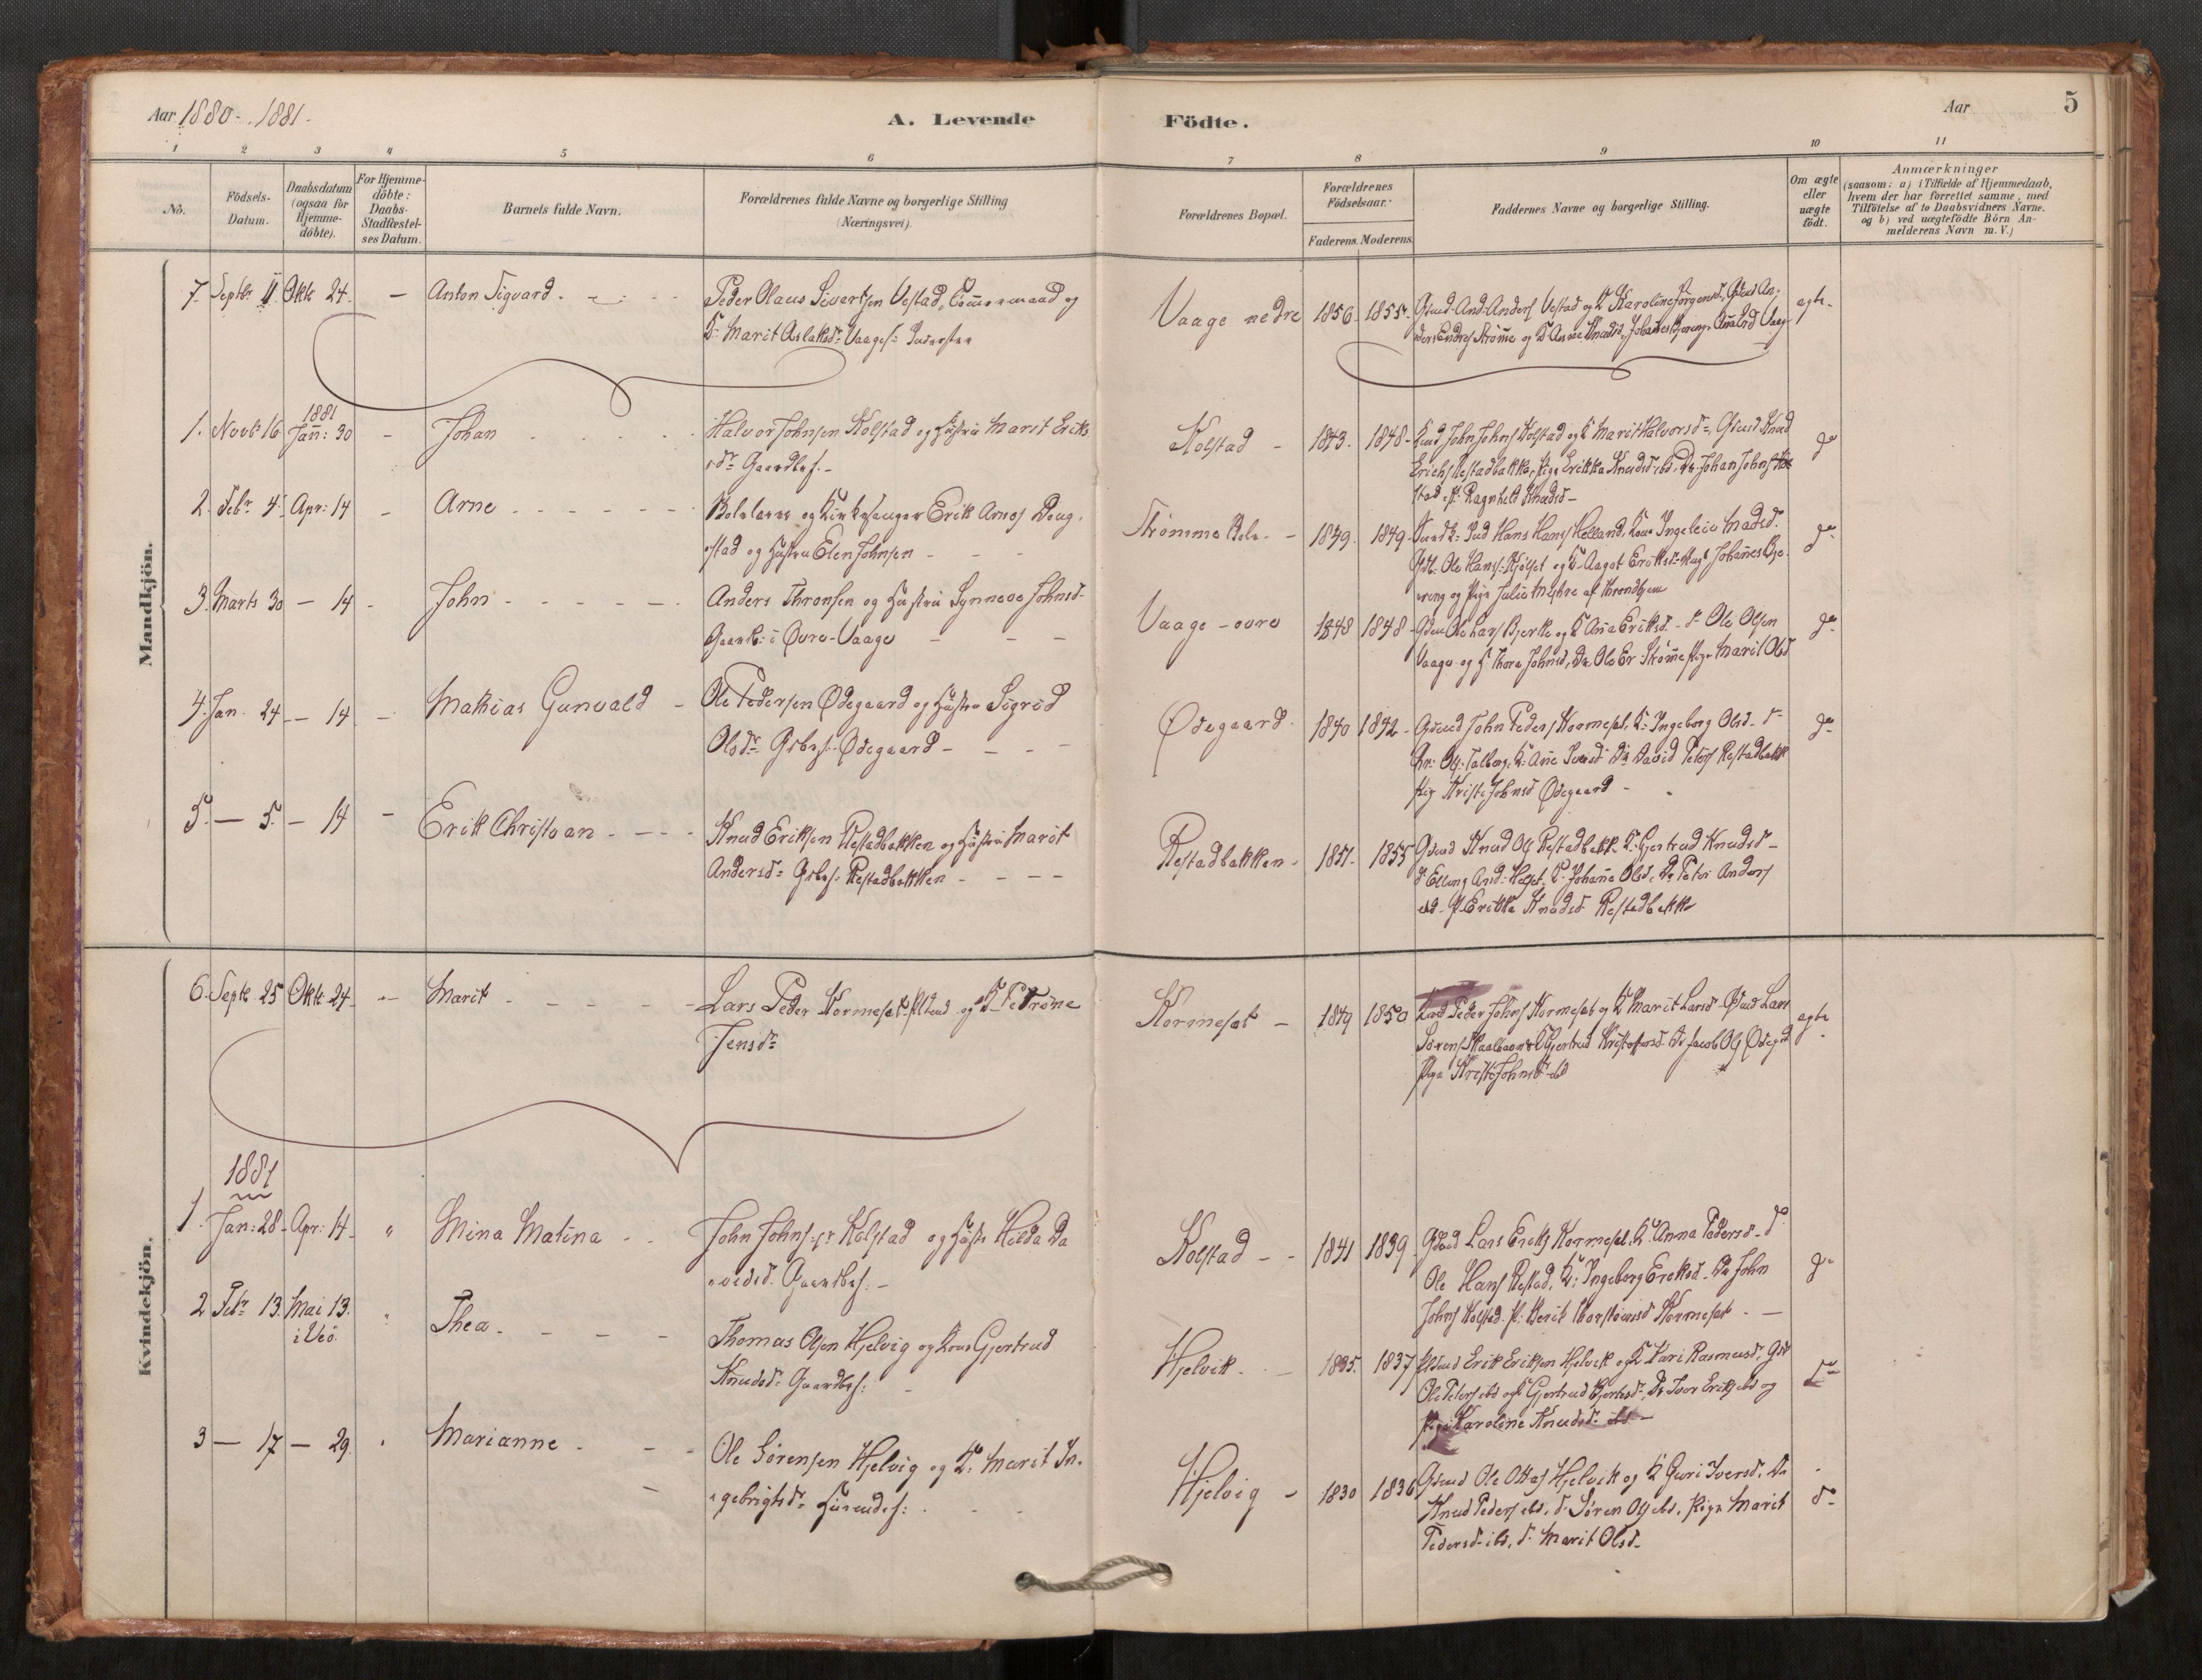 Aar 1880-1881.
A. Levende Födte.
Aar 5
1 2 3 4 5 6 7 8 9 10 11
No.
Födsels-Datum.
Daabsdatum (ogsaa for Hjemme-döbte).
For Hjemme-döbte: Daabs-Stadfæstel-ses Datum.
Barnets fulde Navn.
Forældrenes fulde Navne og borgerlige Stilling
(Næringsvei).
Forældrenes Bopæl.
Forældrenes Födselsaar.
Faderens. Moderens.
Faddernes Navne og borgerlige Stilling.
Om ægte eller uægte födt.
Anmærkninger
(saasom: a) i Tilfælde af Hjemmedaab,
hvem der har forrettet samme, med
Tilföielse af to Daabsvidners Navne.
og b) ved uægtefödte Börn An-
melderens Navn m.V.)
Mandkjön.
7. Septbr 11 Oktr 24. - Anton Sigvard.
Peder Olaus Sivertsen Vestad, og
K: Marit Aslaksdr Vaages:
Vaage nedre 1856 1855
Gsmd And. Anders Vestad og K Karoline Jörgensd. Gsmd An-
ders Endres Strömme og K Anne
ægte
1. Novbr 16 1881 Jan: 30 - Johan
Halvor Johnsen Kolstad og Hustru Marit Eriks
dr Gaardbes.
Kolstad - 1843. 1848
John Johns Kolstad og K Marit Halvorsdr, Gsmd Knud
Erichs Restadbakke, Pige Erikka Knudsd ibd, Dr. Johan Johns Kol
stad, P: Ragnhild Knudsd -
do
2. Febr 4. Apr: 14 - Arne
Skolelærer og Kirkesanger Erik Arnes Doug-
stad og Hustru Elen Johnsen -
Strömme Skole - 1849. 1849
Hans Hans Helland, Kone Ingeleiv Madsd.
Ole Hans: Kjölset og K Aagot Eriksdr Johannes Bje-
ering og Pige Julie af Throndhjem
do
3. Marts 30 - 14 - John
Anders Thronsen og Hustru Synneve Johnsd
Gaardb: i Övre-Vaage
Vaage - övre 1848 1848
Ole Lars Bjerke og K Ane Eriksd - do Ole Olsen
Vaage og H Thora Johnsd, Dr. Ole Er: Strömme Pige Marit Olsd
do
4. Jan 24 - 14 - Mathias Gunvald
Ole Pedersen Ödegaard og Hustru Sigrid
Olsdr Gsbes. Ödegaard
Ödegaard 1840 1842
Gsmd John Peders Kormeset, K: Ingeborg Olsd - do
Talberg, K: Ane Iversd Dr David Peters Restadbakk
Pig Kristi Johnsd Ödegaard -
do
5. - 5. - 14 - Erik Christian
Knud Eriksen Restadbakken og Hustru Marit
Andersdr Gsbes. Restadbakken
Restadbakken 1851 1855
Gsmd Knud Ols Restadbakk K: Gjertrud Knudsd -
do Elling And: Helset, K Johanne Olsd, Dr Peter Anders
ibd P: Erikka Knudsd Restadbakke
Kvindekjön.
6. Septbr 25 Oktr 24 - Marit
Lars Peder Kormeset, og K Petrine
Jensdr
Kormeset - 1849 1850
Peder Johns Kormeset og K Marit Larsd. Gsmd Lars
Sörens og K Gjertrud Kristofersd. Dr Jacob Ols Ödegrd
Pige Kristi Johnsdr ibd
ægte
1881
1. Jan: 28 Apr: 14 " Mina Matina
John Johns: Kolstad og Hust: Hilda Da
vidsd. Gaardbes. -
Kolstad - 1841 1839
Gsmd Lars Eriks Kormeset, K Anna Pedersd - do
Ole Hans Restad, K: Ingeborg Eriksd. Dr John
Johns Kolstad. P: Berit Thorsteinsd Kormeset -
do
2 Febr 13. Mai 13. i Veö " Thea
Thomas Olsen Hjelvig og Kone Gjertrud
Knudsdr Gaardbes:
Hjelvik 1835. 1837
Erik Eriksen Hjelvik og K Kari Rasmusd. Gsd
Ole Peters ibd og K Gjertrud Dr Iver Eriks ibd og
Pige Karoline Knudsdr ibd -
do
3 - 17 - 29. " Marianne
Ole Sörensen Hjelvig og K: Marit In-
gebrigtsdr Husmdsf:
Hjelvig - 1830 1836
Gsmd Ole Ottes Hjelvik og K Guri Iversd. Dr
Knud Peders ibd, do Sören Ols ibd. Pige Marit
Pedersd ibd, do Marit Olsd -
do